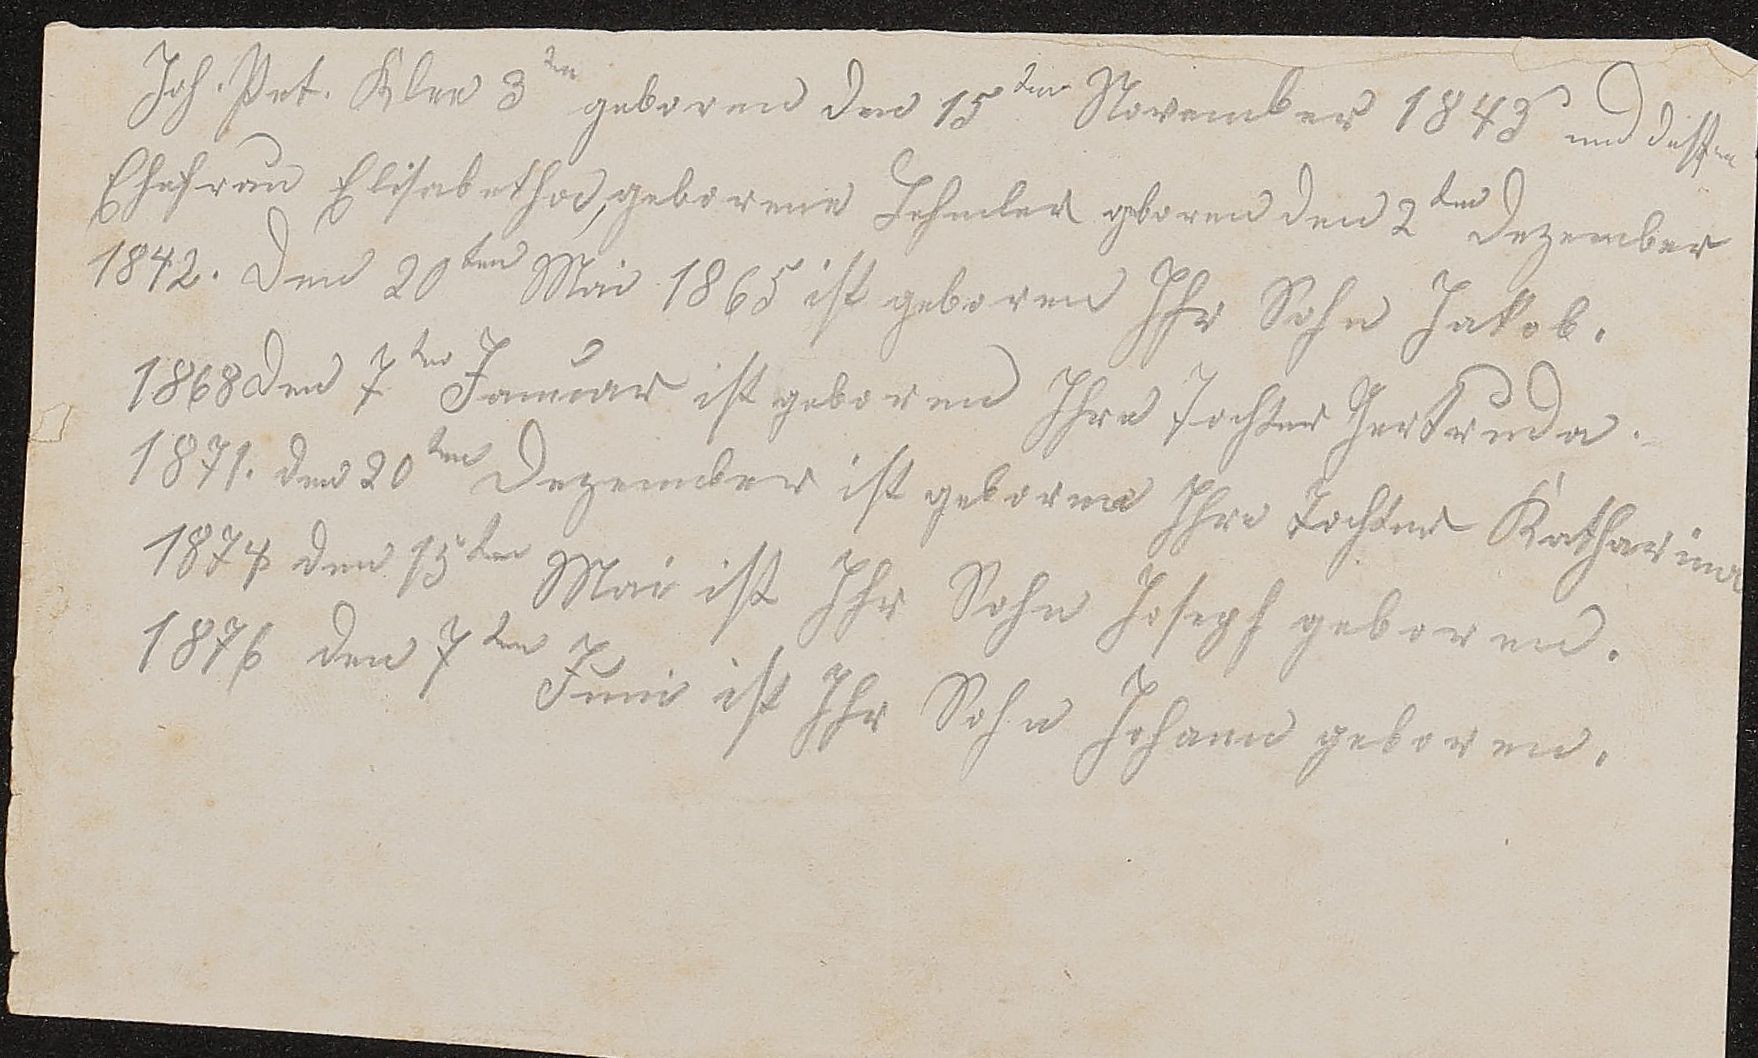 Joh. Pet. Klee 3ten geboren den 15ten November 1843 und dessen
Ehefrau Elisabetha, geborene geboren den 2ten Dezember
1842. Den 20ten Mai 1865 ist geboren Ihr Sohn Jakob.
1868 den 7ten Januar ist geboren Ihre Tochter Gertruda.
1871. den 20ten Dezember ist geboren Ihre Tochter Katharina
1874 den 15ten Mai ist Ihr Sohn Joseph geboren.
1876 den 7ten Juni ist Ihr Sohn Johann geboren.